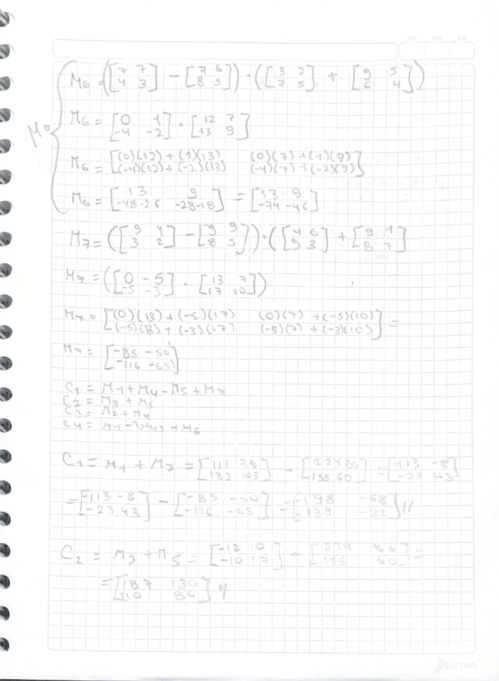 M6 = ([7 7; 4 3] - [7 6; 8 5]) · ([3 2; 7 5] + [9 5; 6 4])
M6 = [0 1; -4 -2] · [12 7; 13 9]
M6 = [(0)(12) + (1)(13) (0)(7) + (1)(9); (-4)(12) + (-2)(13) (-4)(7) + (-2)(9)]
M6 = [13 9; -48-26 -28-18] = [13 9; -74 -46]
M7 = ([9 4; 3 2] - [9 9; 8 5]) · ([4 6; 9 3] + [9 1; 8 7]
M7 = ([0 -5; -5 -3] · [13 7; 17 10])
M7 = [(0)(13) + (-5)(17) (0)(7) + (-5)(10); (-5)(8) + (-3)(17) (-5)(7) + (-3)(10)] =
M7 = [-85 -50; -116 -65]
C1 = M1 + M4 - M5 + M7
C2 = M3 + M5
C3 = M2 + M4
C4 = M1 - M2 + M3 + M6
C1 = M1 + M7 = [111 78; 132 103] - [224 86; 155 60] = [-113 -8; -23 43]
= [-113 -8; -23 43] - [-85 -50; -116 -65] = [-198 -58; -139 -22] //
C2 = M3 + M5 = [-12 10; -10 17] + =
= [187 130; 110 86] //